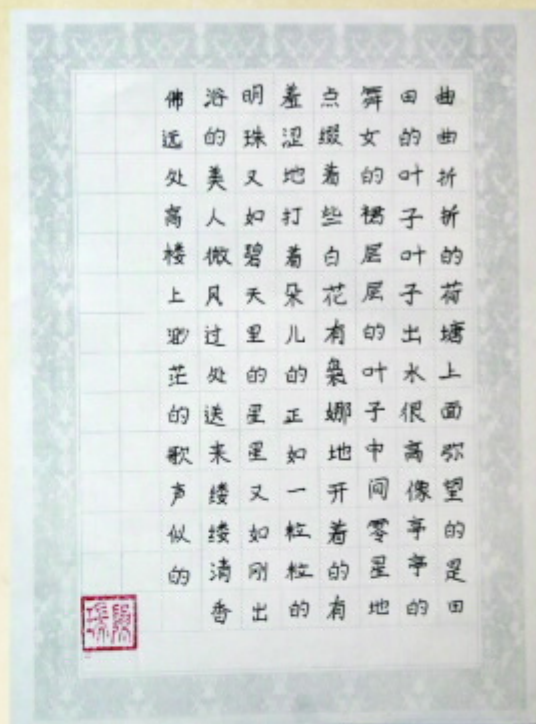 曲曲折折的荷塘上面弥望的是田
田的叶子叶子出水很高像亭亭的
舞女的裙层层的叶子中间零星地
点缀着些白花有袅娜地开着的有
羞涩地打着朵儿的正如一粒粒的
明珠又如碧天里的星星又如刚出
浴的美人微风过处送来缕缕清香
佛远处高楼上渺茫的歌声似的